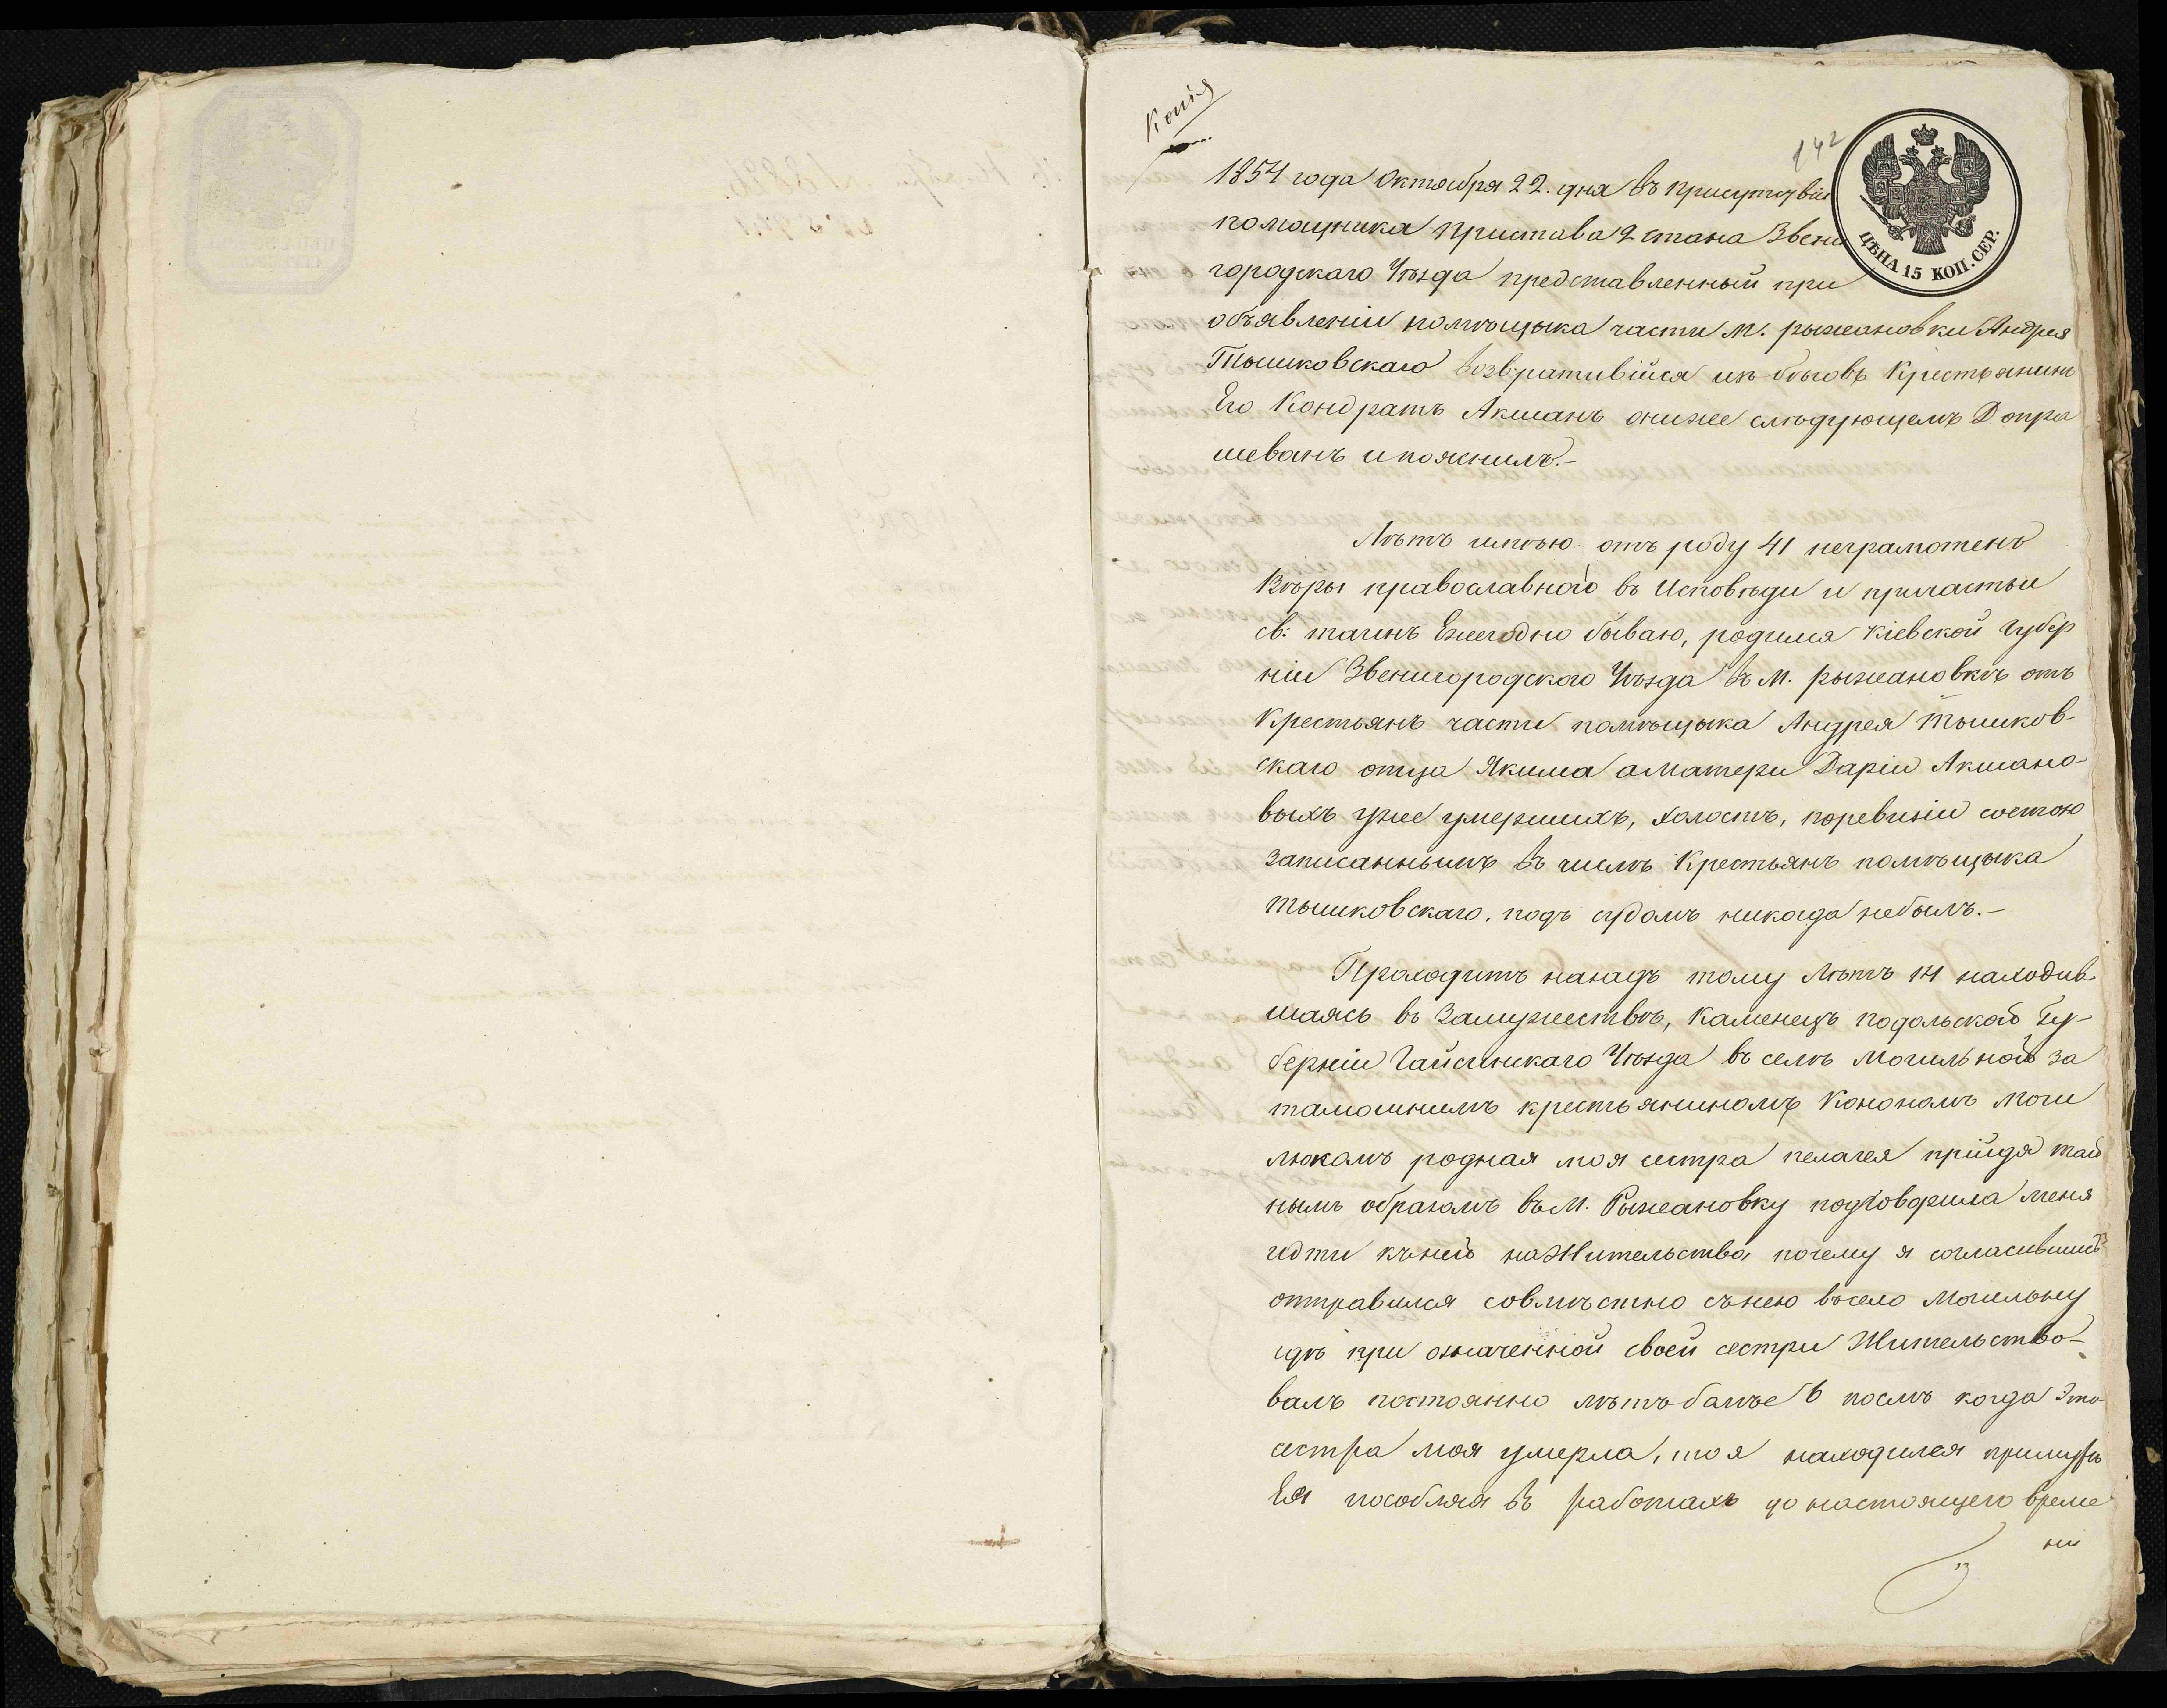 Копія
142
ЦѢНА 15 КОП. СЕР.
1854 года Октября 22. дня въ присутствіи
помощника пристава 2 стана Звени
городскаго Уѣзда представленный при
объявленіи помѣщыка части м. рыжановки Андрея
Тышковскаго возвратившійся изъ бѣговъ Крестьянинъ
Его Кондратъ Акшанъ онижеслѣдующемъ Допра
шеванъ ипояснилъ.-
Лѣтъ имѣю отъ роду 41 неграмотенъ
Вѣры православной въ Исповѣди и причастьи
св: таинъ Ежегодно бываю, родился Кіевской Губер
ніи Звенигородского Уѣзда въ м. рыжановкѣ отъ
Крестьянъ части помѣщыка Андрея Тышков-
скаго отца Якима аматери Даріи Акшано-
выхъ уже умершихъ, холостъ, поревизіи состою
записаннымъ въ числѣ Крестьянъ помѣщыка
тышковскаго, подъ судомъ никогда небылъ.-
Проходитъ назадъ тому лѣтъ 14 находив
шаясь въ Замужествѣ, Каменецъ подольской Гу-
берніи Гайсинскаго Уѣзда въ селѣ Могильной за
тамошнимъ крестьяниномъ Конономъ Моги
люкомъ родная моя сестра пелагея прійдя тай
нымъ образомъ въ М. Рыжановку подговорила меня
идти къней наЖительство почему я согласившись
отправился совмѣстно сънею въсело Могильну
гдѣ при означенной своей сестри Жительство-
валъ постоянно лѣтъ болѣе 6 послѣ когда Эта
сестра моя умерла, то я находился примужѣ
Ея пособляя въ работахъ до настоящего време
ни